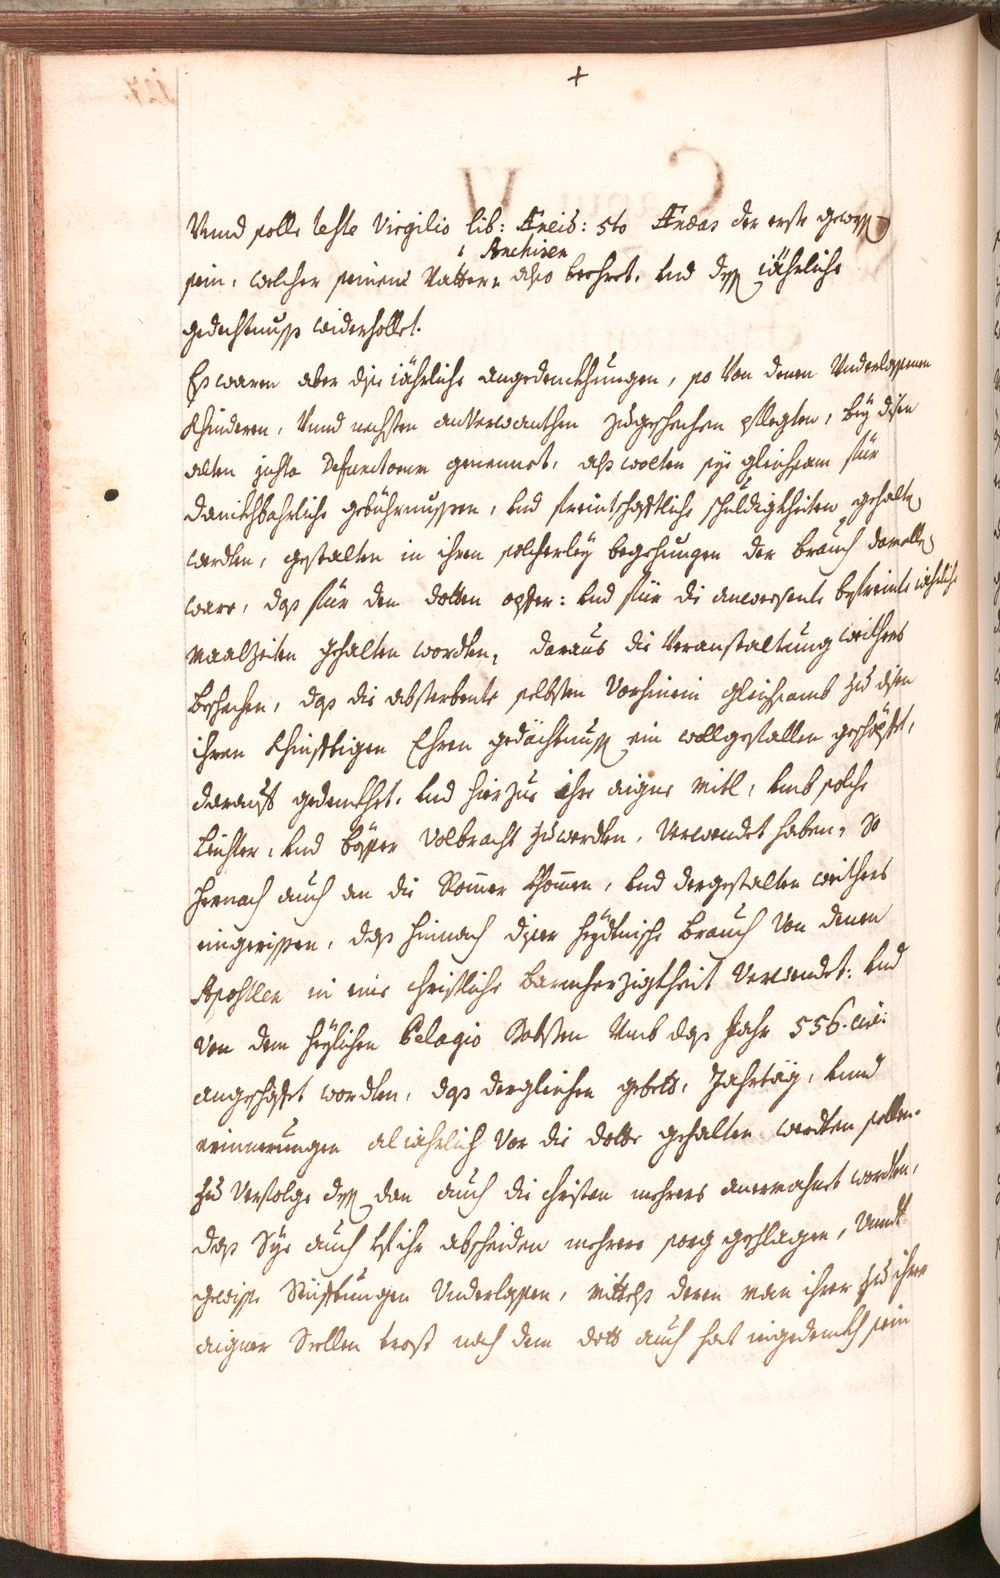 +
Vnnd solle teste Virgilio lib: Æneid: 5to Æneas der erste gewest
Anchisen
sein, welcher seinem Vattern also beehret, und diß iährliche
gedechtnuß widerhollet.
Es waren aber dise iährliche angedenckhungen, so von denen Underlassenen
Khinderen, Vnnd nechsten anverwanthen zugeschechen pflegten, bey disen
alten justa Defunctorum genennet, alß wolten sye gleichsam für
danckhbahrliche gebührnussen, und freintschafftliche schuldigkheiten gehalten
werden, gestalten in ihren solcherley begehungen der brauch damalls
ware, das für den dotten opfer: und für die anwesente befreinte iährliche
maalzeiten gehalten worden, daraus die Veranstaltung weithers
beschechen, das die absterbente selbsten Vorhinein gleichsamb zu disen
ihren khinfftigen Ehren gedächtnuß ein wollgefallen geschöpft,
darauf gedenckhet, und hierzue ihre aigne mitl, umb solche
leichter, und bösser volbracht zuwerden, Verwendet haben, So
hernach auch an die Römer khommen, und dergestalten weithers
eingerissen, das hinnach diser heydnische brauch von denen
Apostlen in eine christliche barmherzigkheit verwendet: und
von dem heyligen Pelagio Pabsten umb das Jahr 556.
angeschafft worden, das dergleichen gebett, Jahrtäg, unnd
erinnerungen al iährlich vor die dotte gehalten werden sollen.
zu Verfolge diß dan auch die christen mehrers anermahnet worden,
das Sye auch auf ihr abscheiden mehrere sorg geschlagen, Unndt
gewisse Stüfftungen Underlassen, mittelß deren man ihrer zu ihrer
aigner Seellen trost nach dem dott auch hat eingedenckh sein